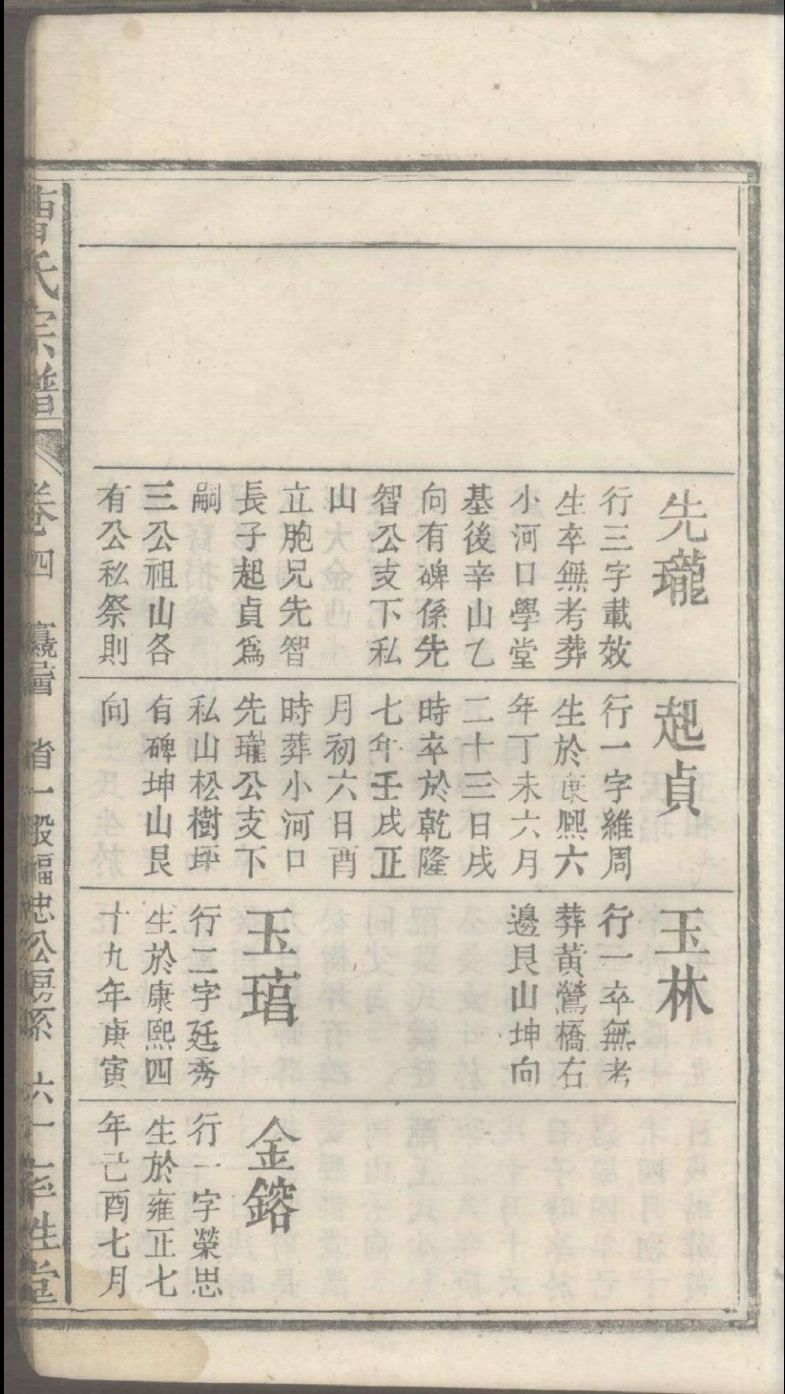 先瓏
行三字載效
生卒無考葬
小河口學堂
基後辛山乙
向有碑係先
智公支下私
山
立胞兄先智
長子起貞爲
嗣
三公祖山各
有公私祭則
起貞
行一字維周
生於康熙六
年丁未六月
二十三日戌
時卒於乾隆
七年壬戌正
月初六日酉
時葬小河口
先瓏公支下
私山松樹坪
有碑坤山艮
向
玉林
行一卒無考
葬黃鶯橋右
邊艮山坤向
玉瑃
行二字廷秀
生於康熙四
十九年庚寅
金鎔
行一字榮思
生於雍正七
年己酉七月
曹氏宗譜
卷四
省一
福忠公房系
六十一
率性堂